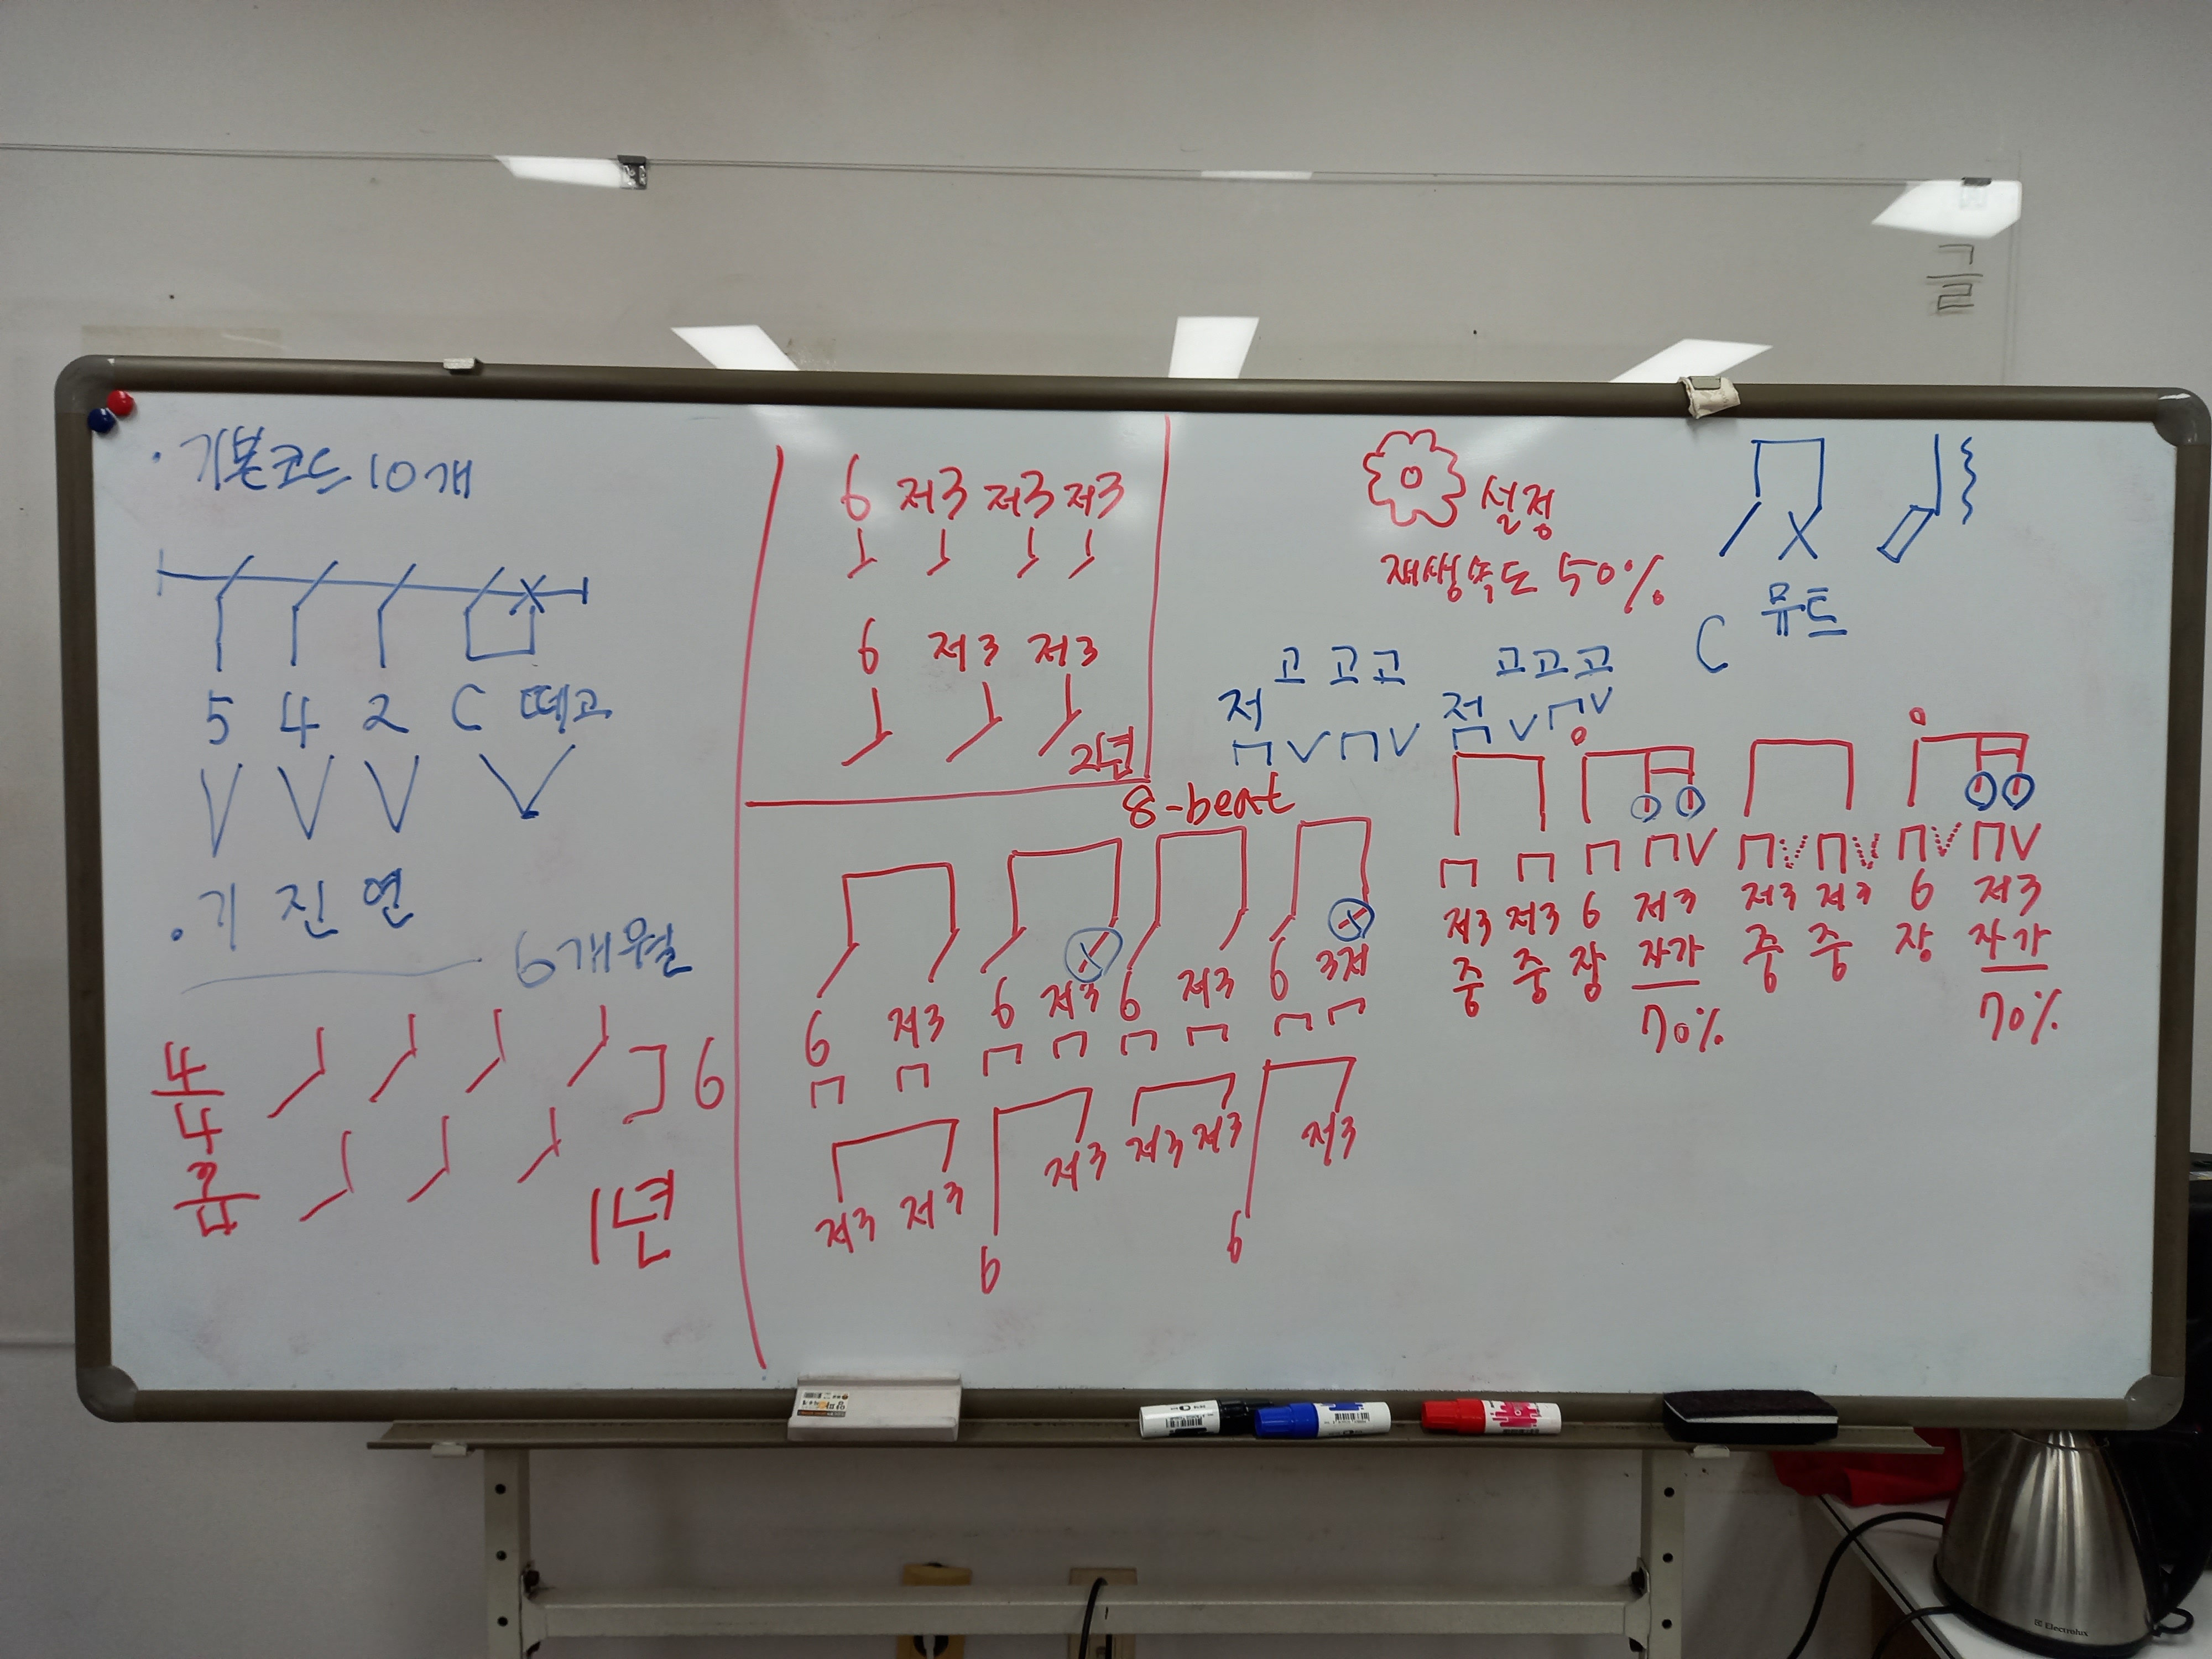 · 기본코드 10개
5 4 2 C 떼고
· 기 진 연
6개월
4/4 6
3/4
1년
6 저3 저3 저3
6 저3 저3
2년
8-beat
6 저3 6 저3 6 저3 6 3저
저3 저3 6 저3 저3 저3 6 저3
설정
재생속도 50%
C 뮤트
고 고 고 고 고 고
저 저
저3 저3 6 저3 저3 저3 6 저3
중 중 장 자가 중 중 장 자가
70% 70%
Electrolux